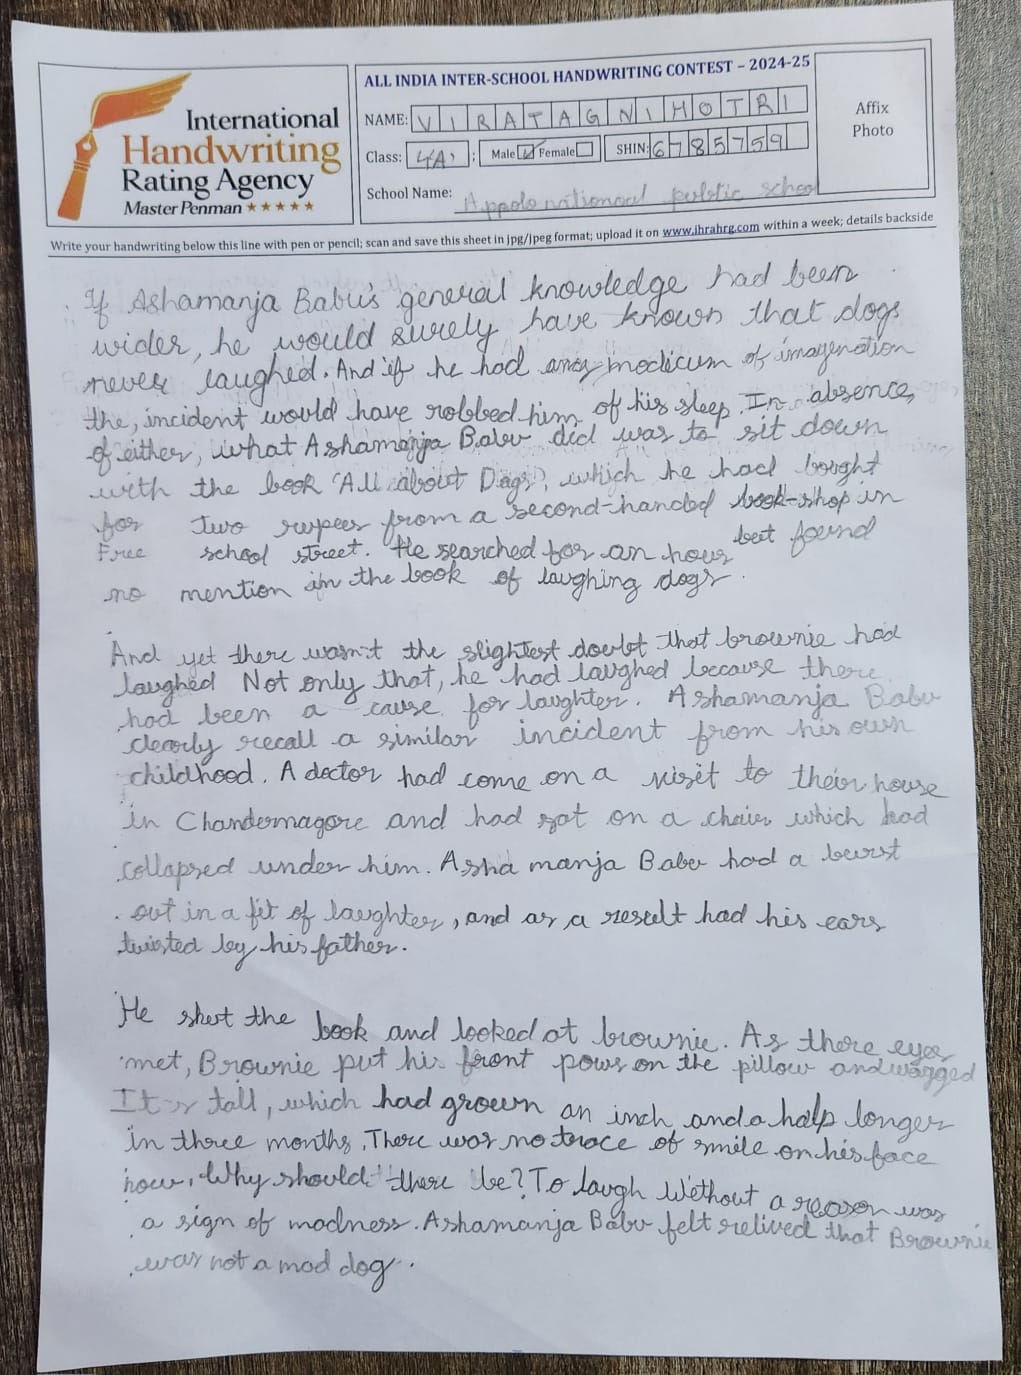 ALL INDIA INTER-SCHOOL HANDWRITING CONTEST – 2024-25
International
Handwriting
Rating Agency
Master Penman ★★★★★
NAME: VIRAT AGNIHOTRI
Class: 4A; Male Female SHIN: 6785759
School Name: Appolo nationoal public school
Affix
Photo
Write your handwriting below this line with pen or pencil; scan and save this sheet in jpg/jpeg format; upload it on www.ihrahrg.com within a week; details backside
If Ashamanja Babu's general knowledge had been
wider, he would surely have known that dogs
never laughed. And if he had any modicum of imagenation
the, incident would have robbed him of his sleep. In absence,
of either, what Ashamanja Babu did was to sit down
with the book 'All about Dogs', which he had bought
for two rupees from a second-handed book-shop in
Free school street. He searched for an hour but found
no mention in the book of laughing dogs.
And yet there wasn't the slightest doubt that brownie had
laughed Not only that, he had laughed because there
had been a cause for laughter. Ashamanja Babu
clearly recall a similar incident from his own
childhood. A doctor had come on a visit to their house
in Chandernagore and had sat on a chair which had
collapsed under him. Asha manja Babu had a burst
out in a fit of laughter, and as a result had his ears
twisted by his father.
He shut the book and looked at brownie. As there eyes
met, Brownie put his front pows on the pillow and wagged
It's tall, which had grown an inch and a halp longer
in three months. There was no trace of smile on his face
now. Why should there be? To laugh without a reason was
a sign of madness. Ashamanja Babu felt relived that Brownie
was not a mad dog.